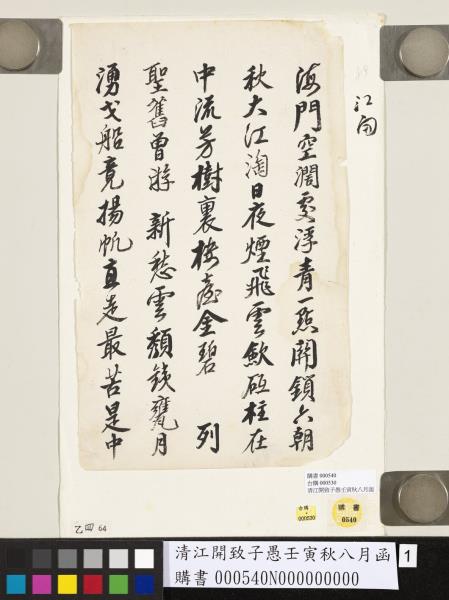 江
海門空濶處浮青一點開鎖六朝
秋大江淘日夜煙飛雲斂砥柱在
中流芳樹裏樓臺金碧 列
聖舊曾遊 新愁雲頹鐵甕月
湧戈船竟揚帆直走最苦是中
購書 000540
台購 000530
清江開致子愚壬寅秋八月函
台購
000530
購書
0540
乙四 64
清江開致子愚壬寅秋八月函
購書 000540N000000000
1